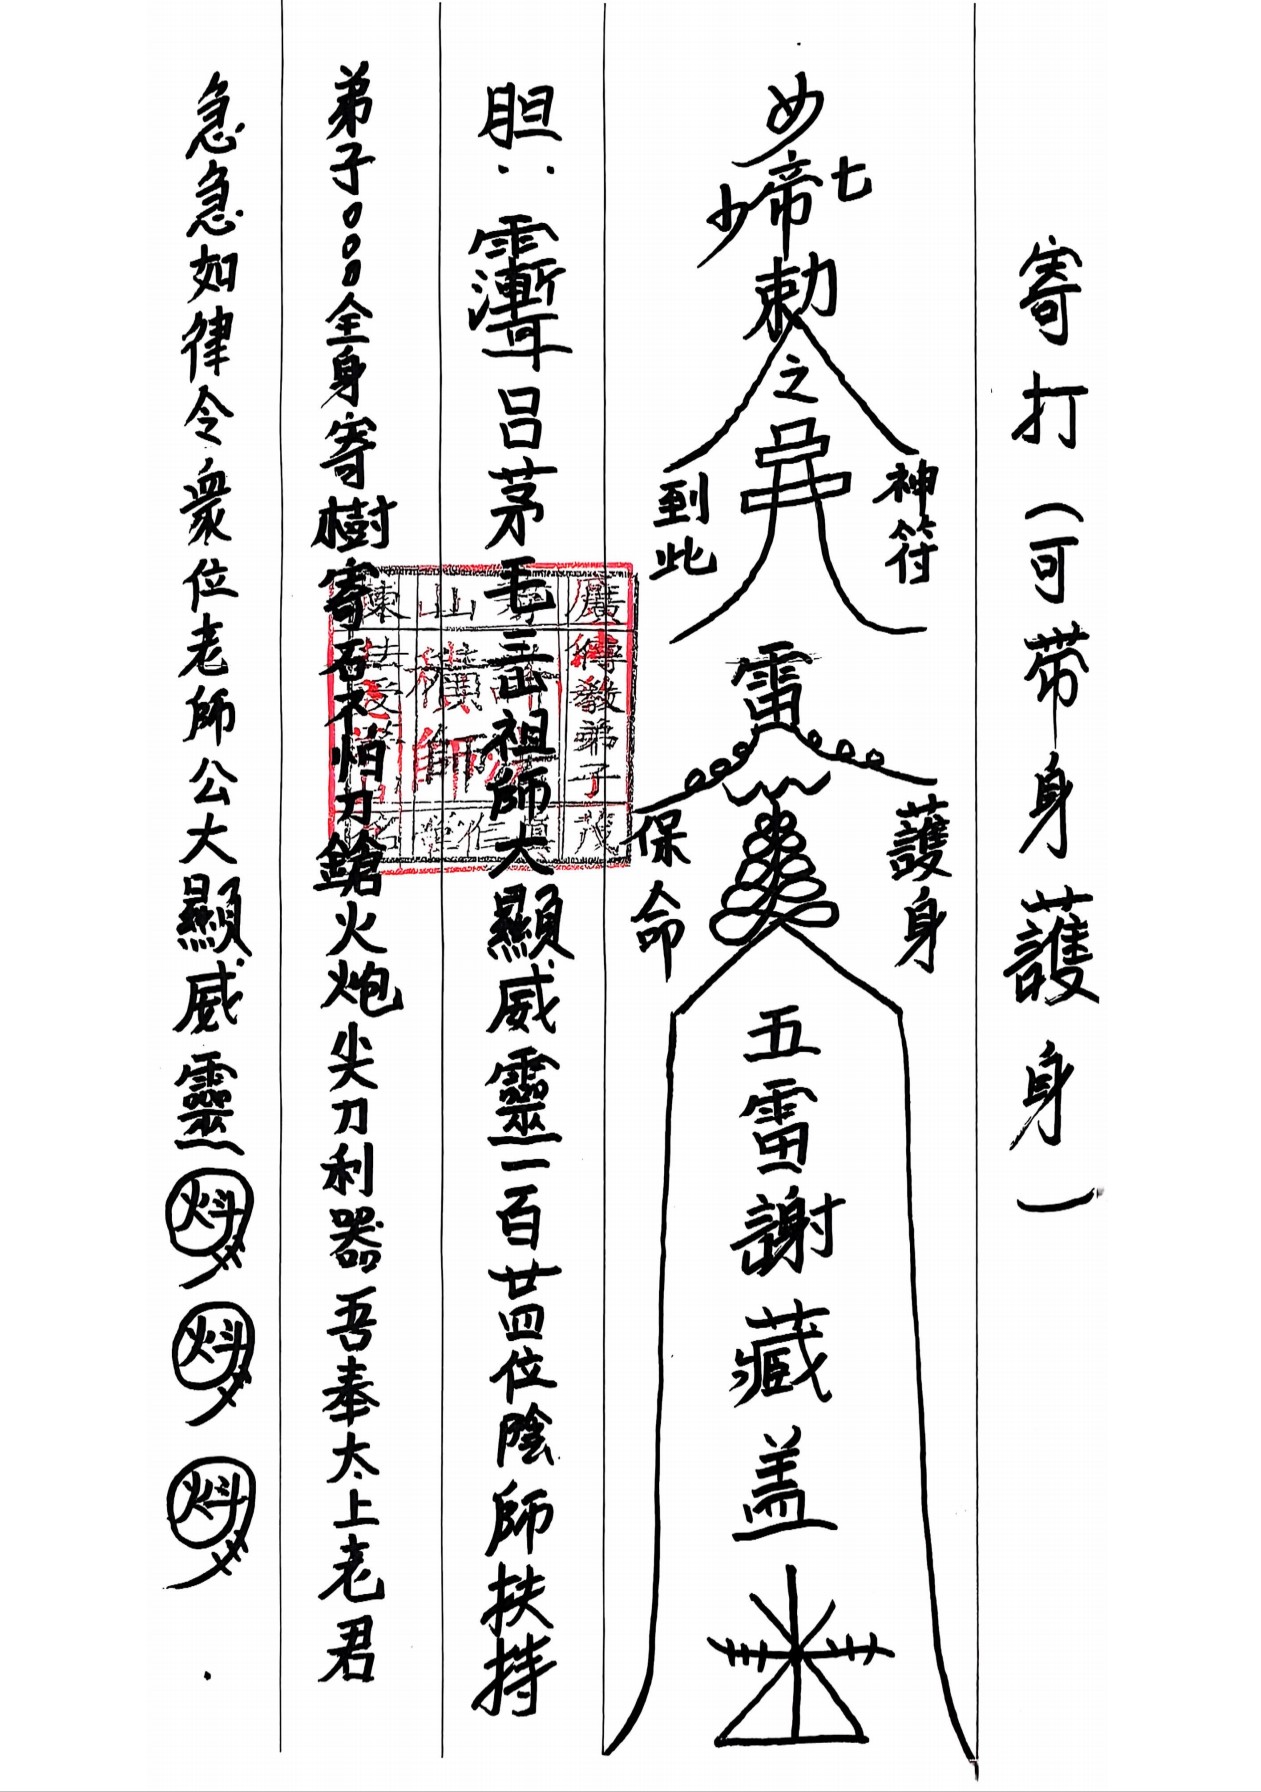 寄打（可帶身護身）
七
帝
少
勅
之
神符
到此
雷
護身
保命
五雷謝藏盖
胆：
呂茅毛三山祖師大顯威靈一百廿四位陰師扶持
弟子○○○全身寄樹寄石不怕刀鎗火炮尖刀利器吾奉太上老君
急急如律令衆位老師公大顯威靈
廣傳教弟子茂